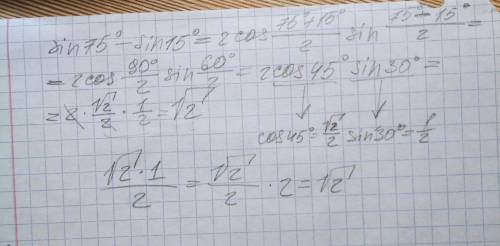 sin75° - sin15° = 2cos (75°+15°)/2 sin (75°-15°)/2 =
= 2cos 90°/2 sin 60°/2 = 2cos45° sin30° =
= 2 · √2/2 · 1/2 = √2
cos45° = √2/2 sin30° = 1/2
√2 · 1/2 = √2/2 · 2 = √2